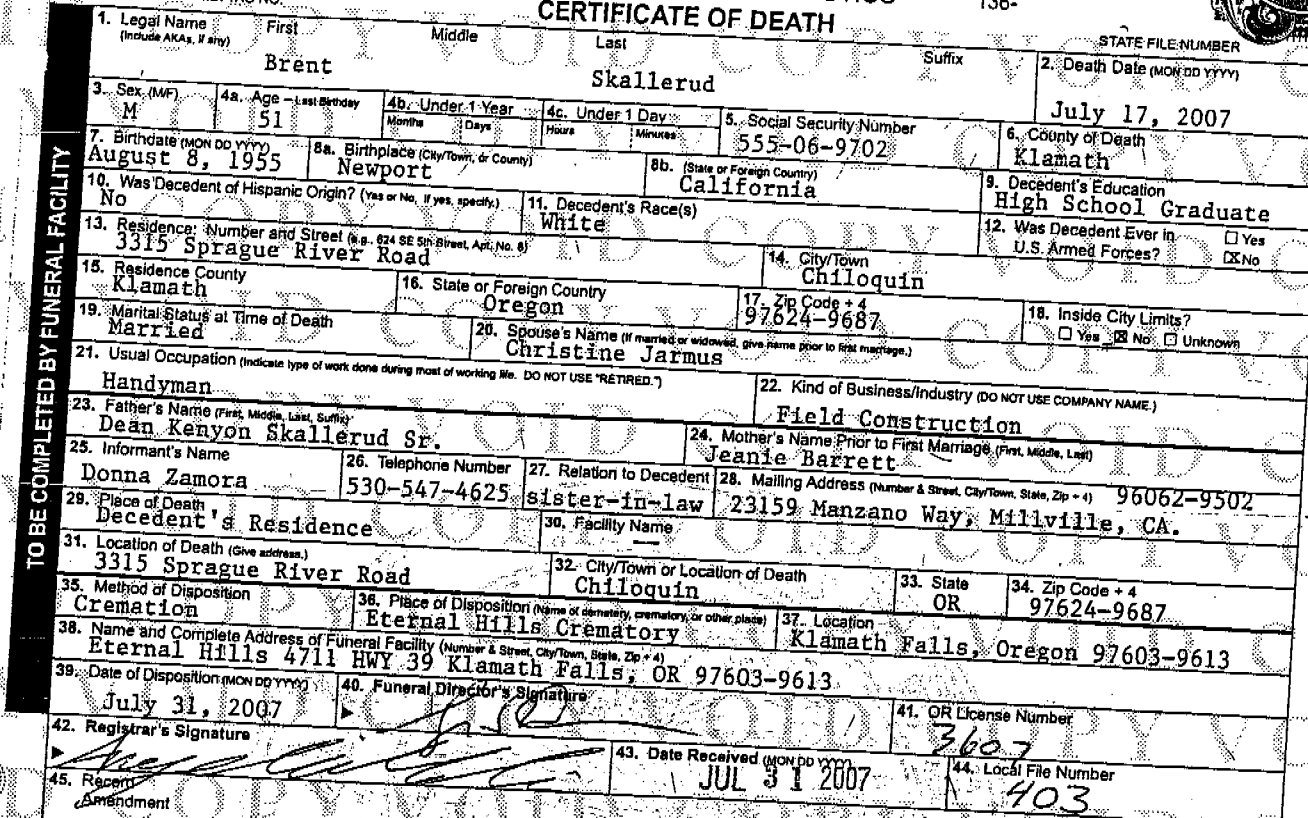 CERTIFICATE OF DEATH
136-
STATE FILE NUMBER
1. Legal Name (Include AKAs, if any) First Middle Last Suffix
Brent Skallerud
2. Death Date (MON DD YYYY)
July 17, 2007
3. Sex (M/F) M
4a. Age – Last Birthday 51
4b. Under 1 Year Months Days
4c. Under 1 Day Hours Minutes
5. Social Security Number
555-06-9702
6. County of Death
Klamath
7. Birthdate (MON DD YYYY)
August 8, 1955
8a. Birthplace (City/Town, or County)
Newport
8b. (State or Foreign Country)
California
9. Decedent's Education
High School Graduate
10. Was Decedent of Hispanic Origin? (Yes or No, If yes, specify.)
No
11. Decedent's Race(s)
White
12. Was Decedent Ever in U.S. Armed Forces? ☐ Yes ☒ No
13. Residence: Number and Street (e.g., 624 SE 5th Street, Apt. No. 8)
3315 Sprague River Road
14. City/Town
Chiloquin
15. Residence County
Klamath
16. State or Foreign Country
Oregon
17. Zip Code + 4
97624-9687
18. Inside City Limits?
☐ Yes ☒ No ☐ Unknown
19. Marital Status at Time of Death
Married
20. Spouse's Name (If married or widowed, give name prior to first marriage.)
Christine Jarmus
21. Usual Occupation (Indicate type of work done during most of working life. DO NOT USE "RETIRED.")
Handyman
22. Kind of Business/Industry (DO NOT USE COMPANY NAME.)
Field Construction
23. Father's Name (First, Middle, Last, Suffix)
Dean Kenyon Skallerud Sr.
24. Mother's Name Prior to First Marriage (First, Middle, Last)
Jeanie Barrett
25. Informant's Name
Donna Zamora
26. Telephone Number
530-547-4625
27. Relation to Decedent
sister-in-law
28. Mailing Address (Number & Street, City/Town, State, Zip + 4) 96062-9502
23159 Manzano Way, Millville, CA.
29. Place of Death
Decedent's Residence
30. Facility Name
—
31. Location of Death (Give address.)
3315 Sprague River Road
32. City/Town or Location of Death
Chiloquin
33. State
OR
34. Zip Code + 4
97624-9687
35. Method of Disposition
Cremation
36. Place of Disposition (Name of cemetery, crematory, or other place)
Eternal Hills Crematory
37. Location
Klamath Falls, Oregon 97603-9613
38. Name and Complete Address of Funeral Facility (Number & Street, City/Town, State, Zip + 4)
Eternal Hills 4711 HWY 39 Klamath Falls, OR 97603-9613
39. Date of Disposition (MON DD YYYY)
July 31, 2007
40. Funeral Director's Signature
41. OR License Number
3607
42. Registrar's Signature
43. Date Received (MON DD YYYY)
JUL 31 2007
44. Local File Number
403
45. Record
Amendment
TO BE COMPLETED BY FUNERAL FACILITY